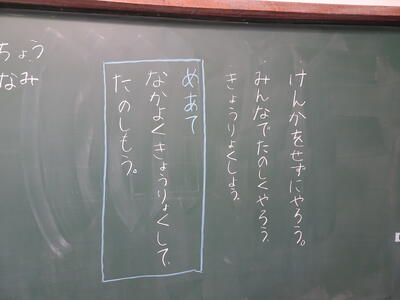 けんかをせずにやろう。
みんなでたのしくやろう
きょうりょくしよう
めあて
なかよくきょうりょくして、
たのしもう。
ちょう
なみ